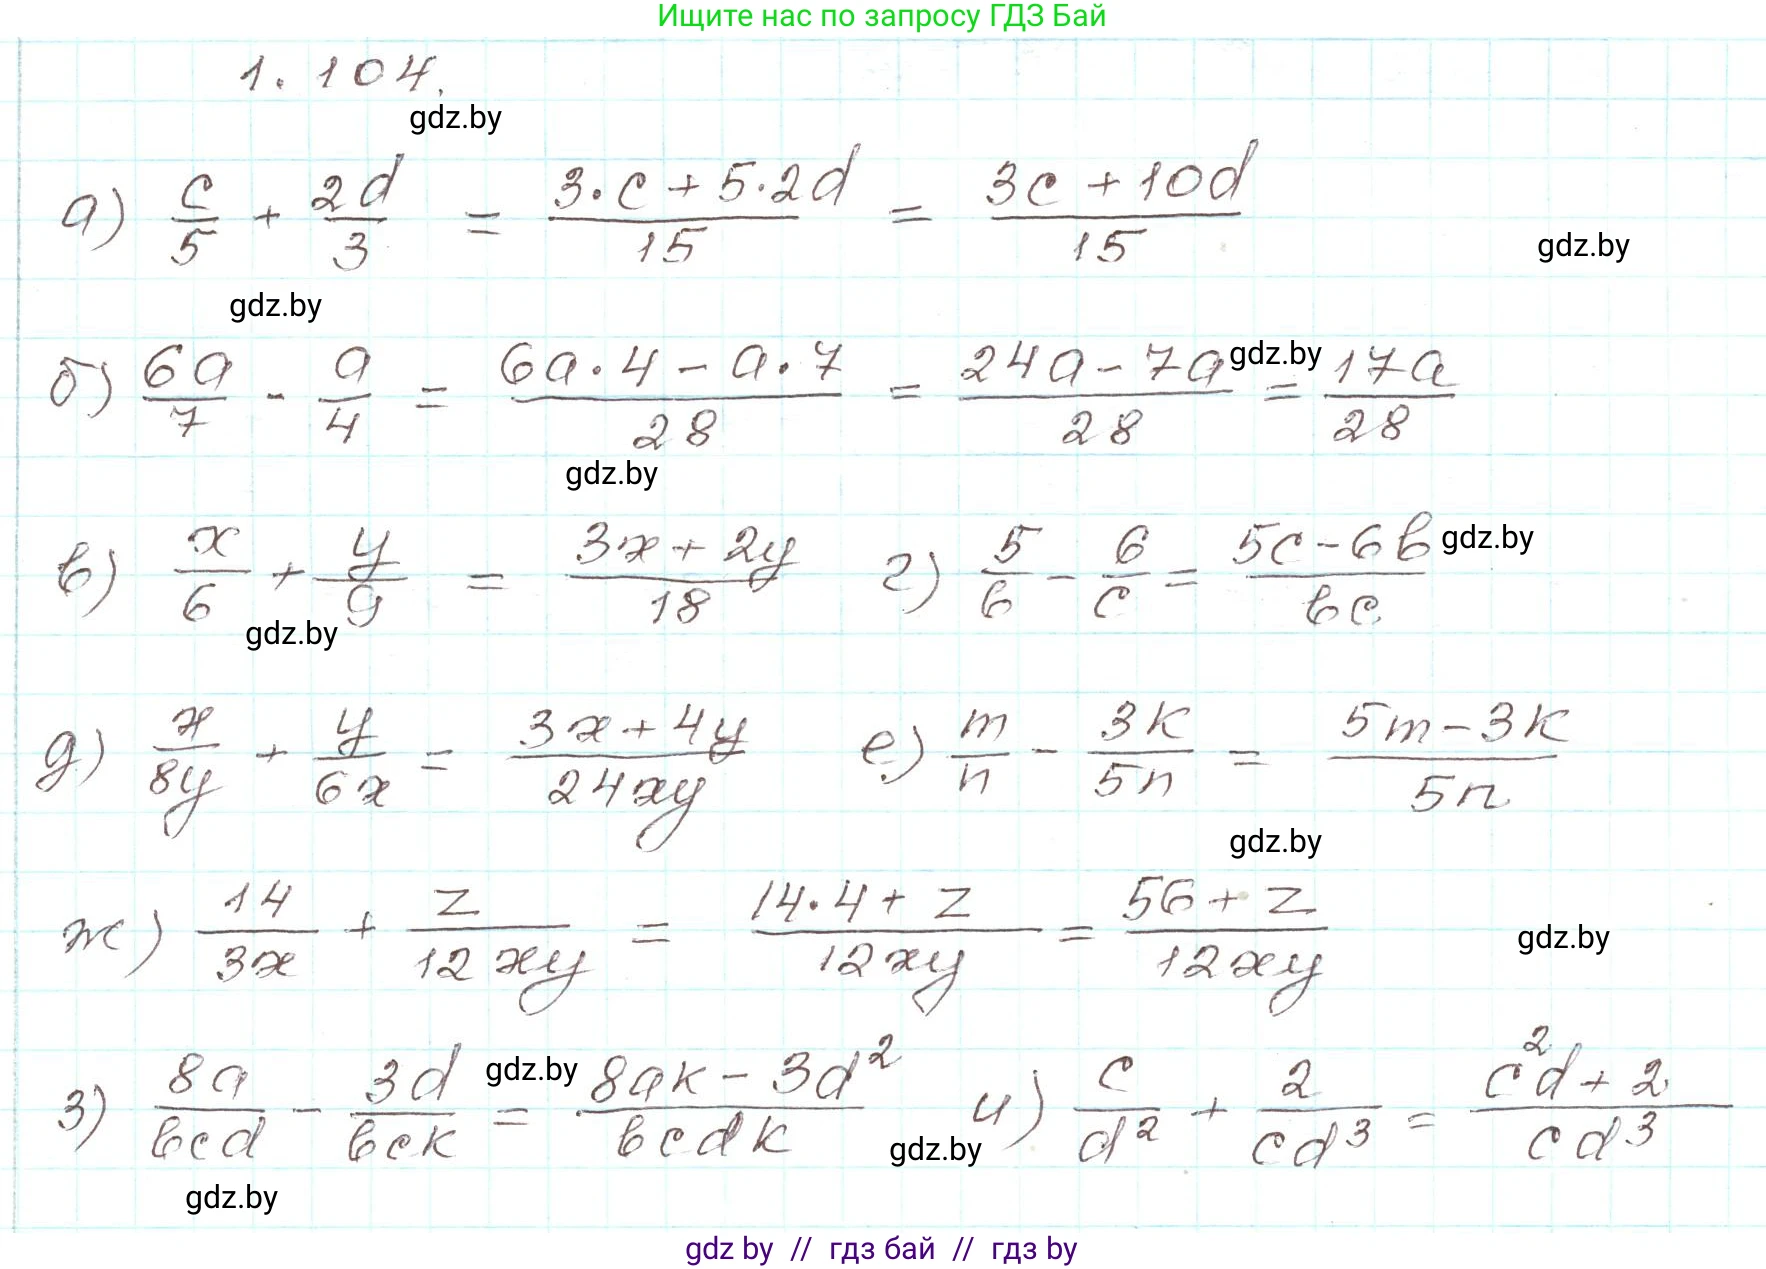 Ищите нас по запросу ГДЗ Бай
1.104.
gdz.by
а) c/5 + 2d/3 = (3·c+5·2d)/15 = (3c+10d)/15
gdz.by
gdz.by
б) 6a/7 - a/4 = (6a·4-a·7)/28 = (24a-7a)/28 = 17a/28
gdz.by
gdz.by
в) x/6 + y/9 = (3x+2y)/18 г) 5/b - 6/c = (5c-6b)/bc
gdz.by
gdz.by
д) x/8y + y/6x = (3x+4y)/24xy е) m/n - 3k/5n = (5m-3k)/5n
gdz.by
ж) 14/3x + z/12xy = (14·4+z)/12xy = (56+z)/12xy
gdz.by
з) 8a/bcd - 3d/bck = (8ak-3d²)/bcdk и) c/d² + 2/cd³ = (c²d+2)/cd³
gdz.by
gdz.by
gdz.by
gdz by // гдз бай // гдз by